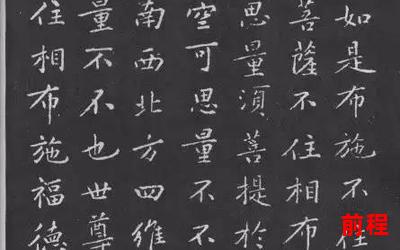 如是布施不
菩薩不住相布
思量須菩提於
空可思量不不
南西北方四維
量不不也世尊
住相布施福德
前程